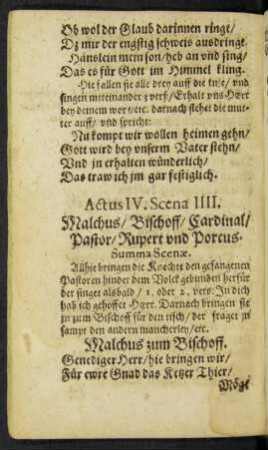 Ob wol der Glaub darinnen ringt/
Dz mir der engstig schweis ausdringt.
Hänslein mein son/heb an vnd sing/
Das es für Gott im Himmel kling.
Hie fallen sie alle drey auff die knie/ vnd
singen miteinander 2 verß/ Erhalt vns HErr
bey deinem wort/etc. darnach stehet die mut-
ter auff/ vnd spricht:
Nu kompt wir wollen heimen gehn/
Gott wird bey vnserm Vater stehn/
Vnd in erhalten wünderlich/
Das traw ich jm gar festiglich.
Actus IV. Scena IIII.
Malchus/ Bischoff/ Cardinal/
Pastor/ Rupert vnd Porcus.
Summa Scenæ.
Allhie bringen die Knechte den gefangenen
Pastoren hinder dem Volck gebunden herfür
der singet alsbald/ 1. oder 2. vers: In dich
hab ich gehoffet Herr. Darnach bringen sie
jn zum Bischoff für den tisch/ der fraget jn
sampt den andern mancherley/etc.
Malchus zum Bischoff.
Genediger Herr/ hie bringen wir/
Für ewre Gnad das Ketzer Thier/
Mögt